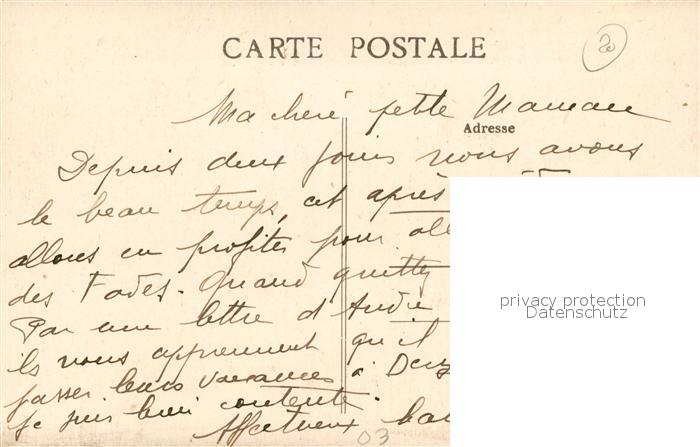 CARTE POSTALE
20
Ma cheré petite Maman
Adresse
Depuis deux jours nous avons
le beau temps, cet après
allons en profiter pour all
des Fades. Quand quittez
Par une lettre d'André
ils nous apprennent qu'il
passer leurs vacances à
je suis bien contente.
Affectueux bai
03
privacy protection
Datenschutz